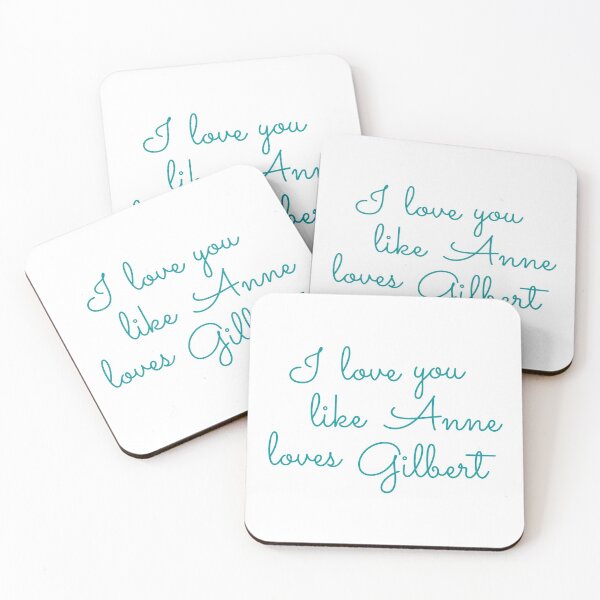 I love you
I love you
like Anne
loves Gilbert
I love you
like Anne
loves
I love you
like Anne
loves Gilbert